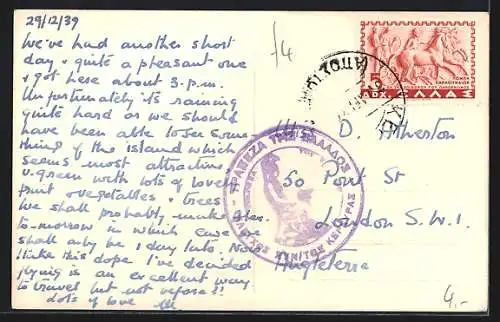 29/12/39
We've had another short
day & quite a pleasant one
& got here about 3.p.m.
Unfortunately its raining
quite hard as we should
have been able to see some-
thing of the island which
seems most attractive.
v. green with lots of lovely
fruit & vegetables & trees
We shall probably make
to-morrow in which case we
shall only be 1 day late. Now
I take this dope I've decided
flying is an excellent way
to travel but not before!!
Lots of love
f4
Miss D. Atherton
50 Pont St
London S.W.1.
Angleterre
5
ΔΡΧ.
ΕΛΛΑΣ
ΤΡΑΠΕΖΑ ΤΗΣ ΕΛΛΑΔΟΣ
ΚΕΡΚΥΡΑΣ
4,-